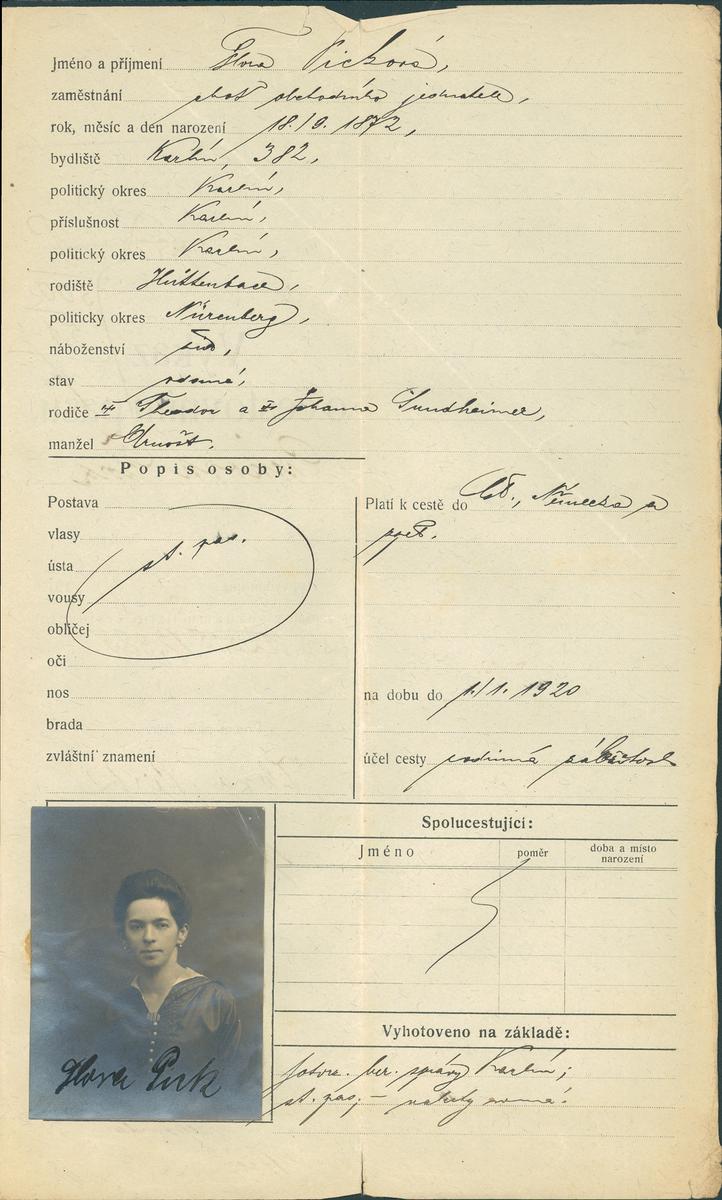 Jméno a příjmení Flora Picková,
zaměstnání choť obchodního jednatele,
rok, měsíc a den narození 18./9. 1872,
bydliště Karlín, 382,
politický okres Karlín,
příslušnost Karlín,
politický okres Karlín,
rodiště Hüttenbach,
politicky okres Nürenberg,
náboženství žid.,
stav vdaná,
rodiče Theodor a Johanna Sundheimer,
manžel Arnošt.
Popis osoby:
Postava
vlasy
ústa
vousy
obličej
oči
nos
brada
zvláštní znamení
st. pas.
Platí k cestě do Německa a
zpět.
na dobu do 1./1. 1920
účel cesty rodinná záležitost
Spolucestující:
Jméno
poměr
doba a místo
narození
Vyhotoveno na základě:
ber. správy Karlín;
st. pas; –
Flora Pick